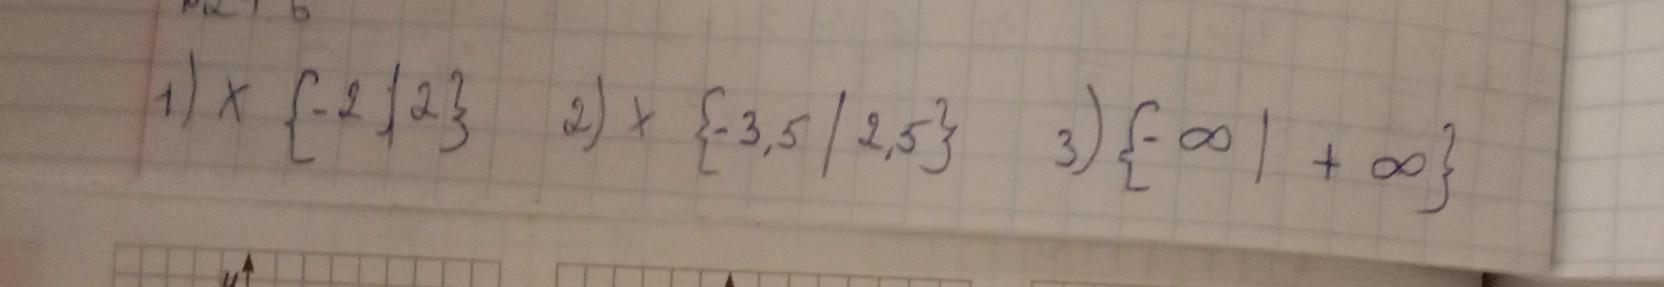 1) x {-2 | 2} 2) x {-3,5 | 2,5} 3) {-∞ | +∞}
y